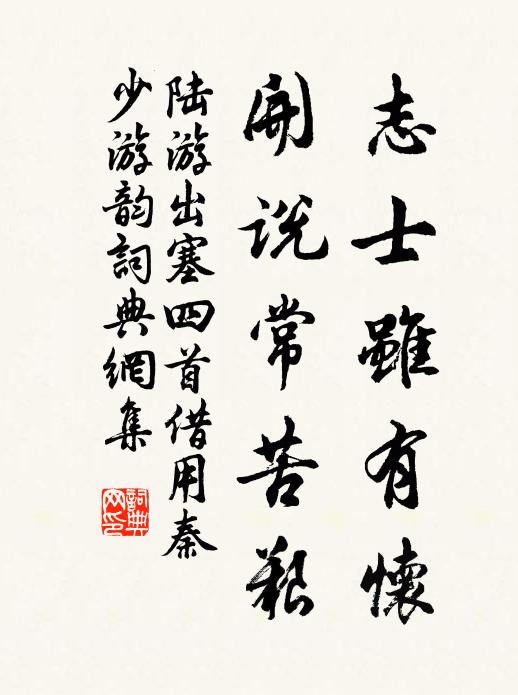 志士雖有懷
開说常苦艱
陆游出塞四首借用秦
少游韵詞典網集
詞典
网印